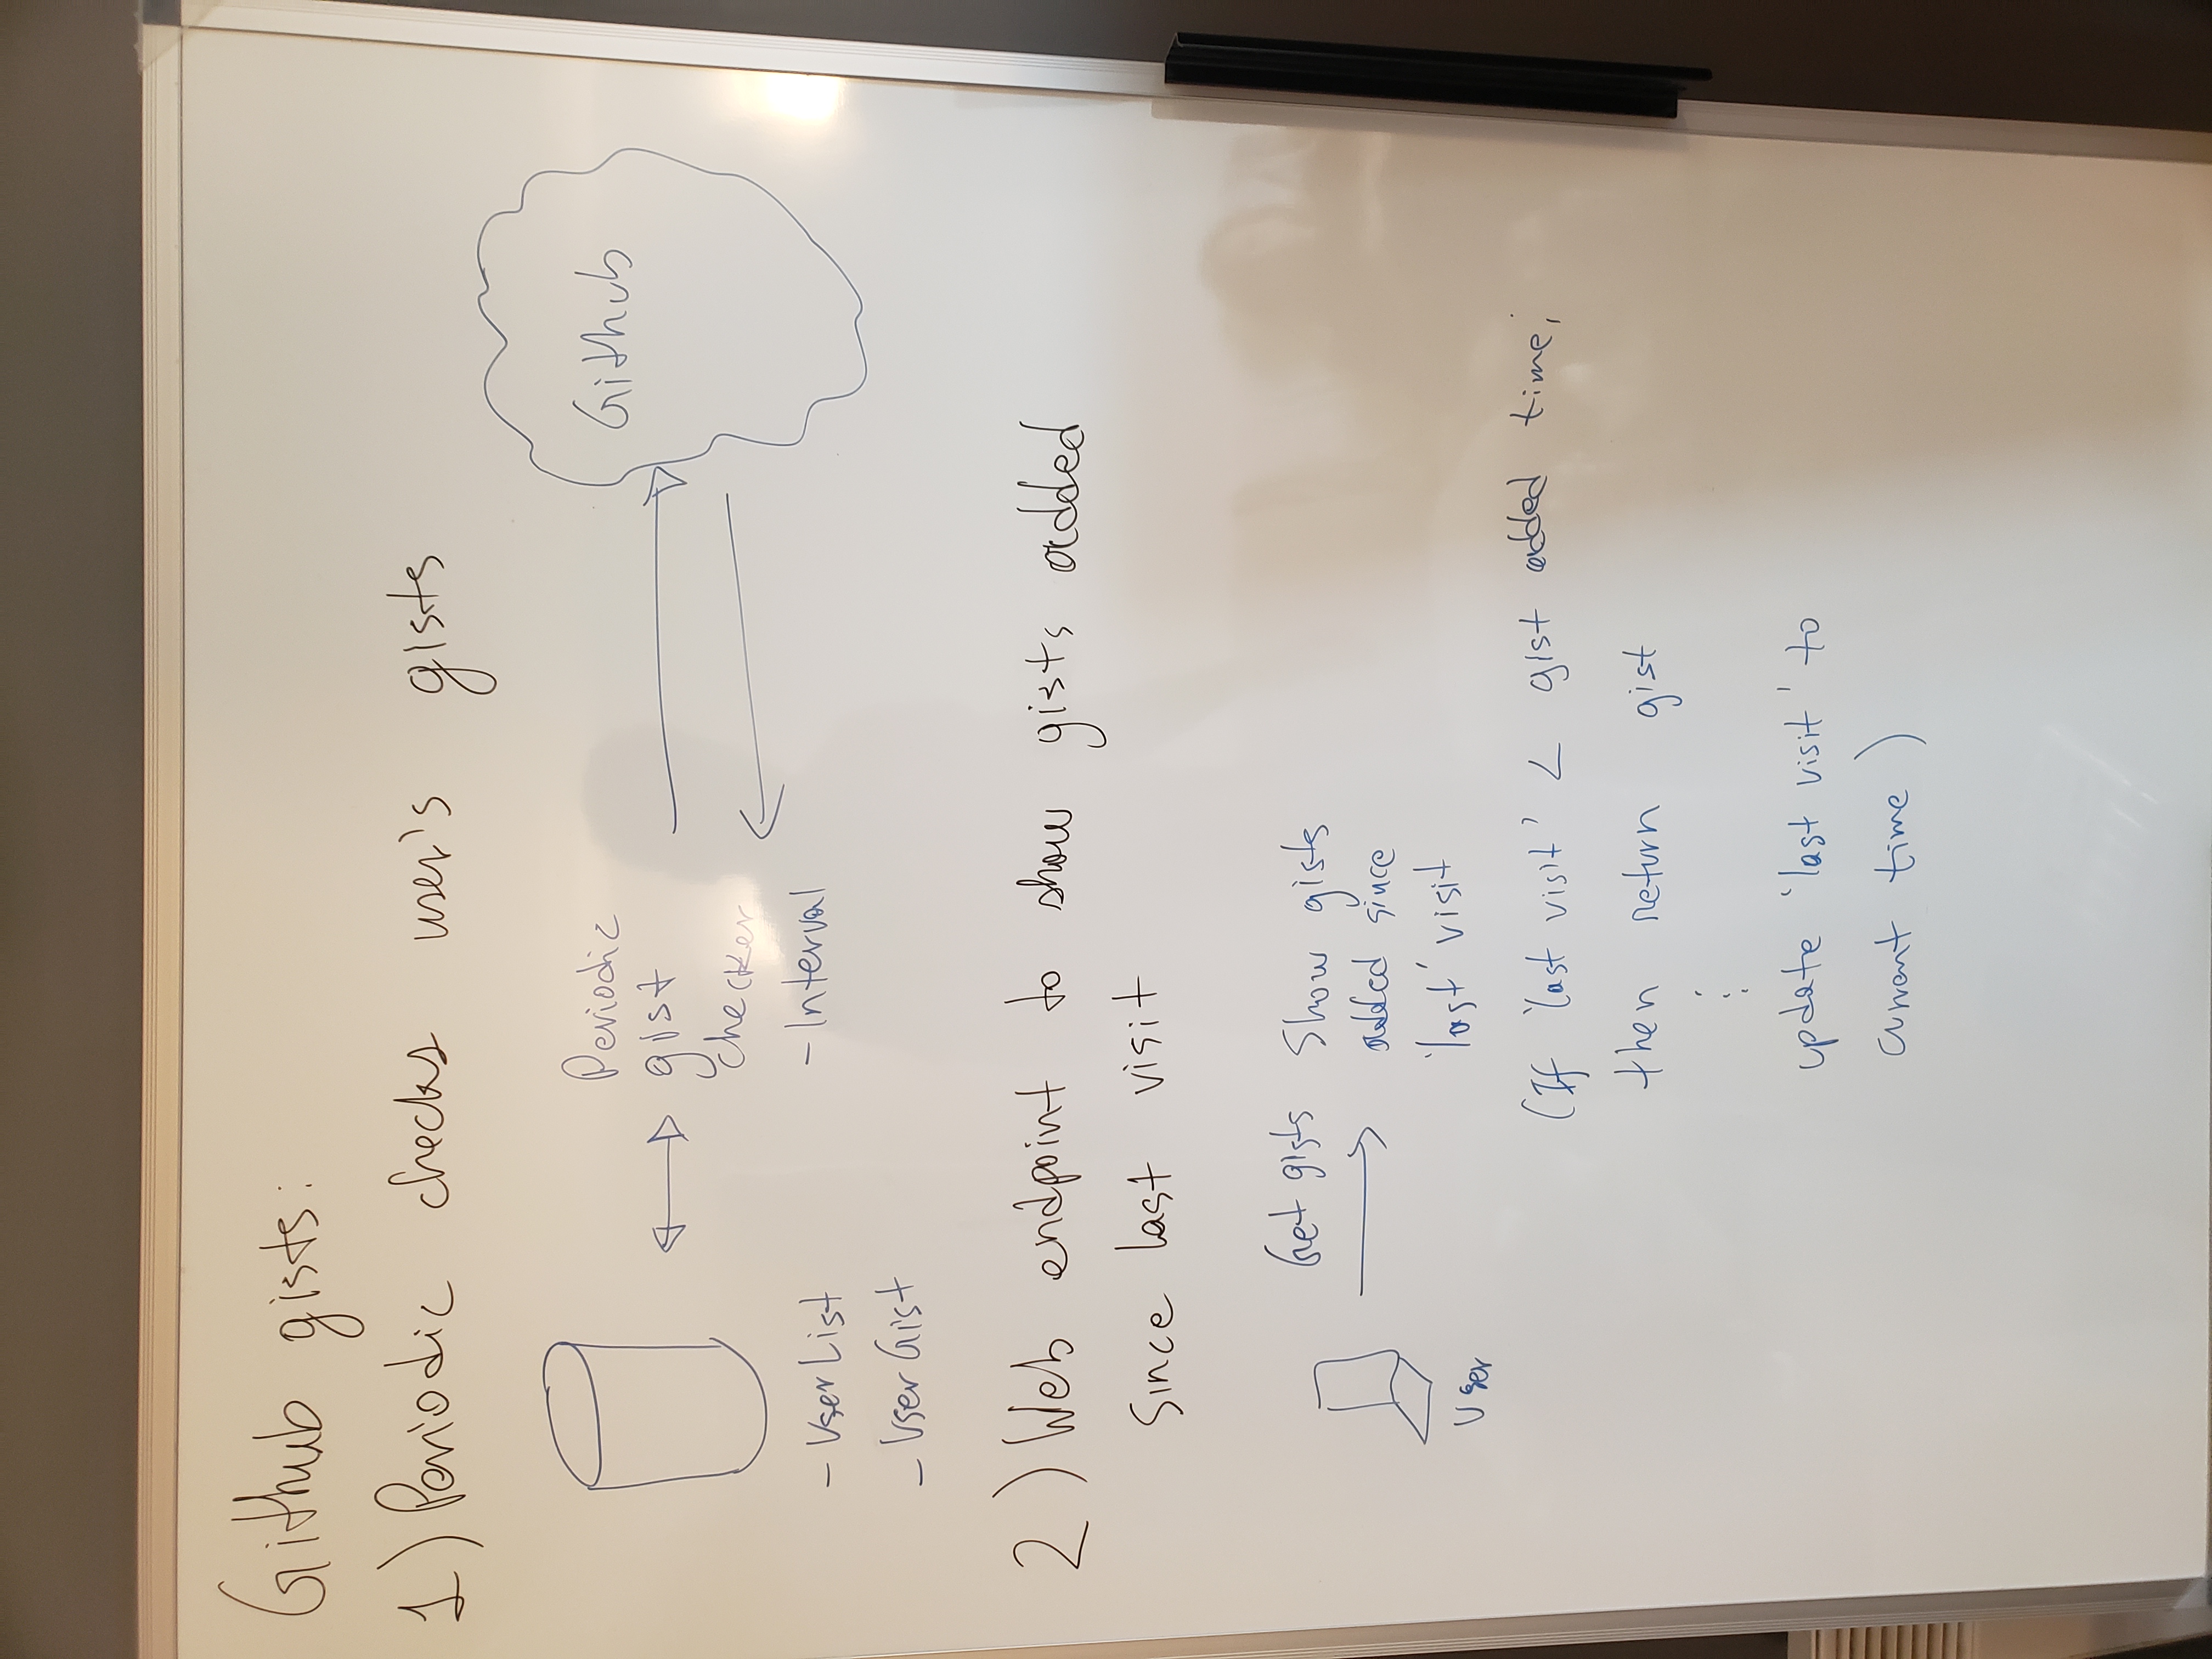 Github gists:
1) Periodic checks user's gists
Periodic
gist
checker
- Interval
Github
- UserList
- UserGist
2) Web endpoint to show gists added
since last visit
Get gists
User
Show gists
added since
'last' visit
(If 'last visit' < gist added time,
then return gist
⋮
update 'last visit' to
current time)